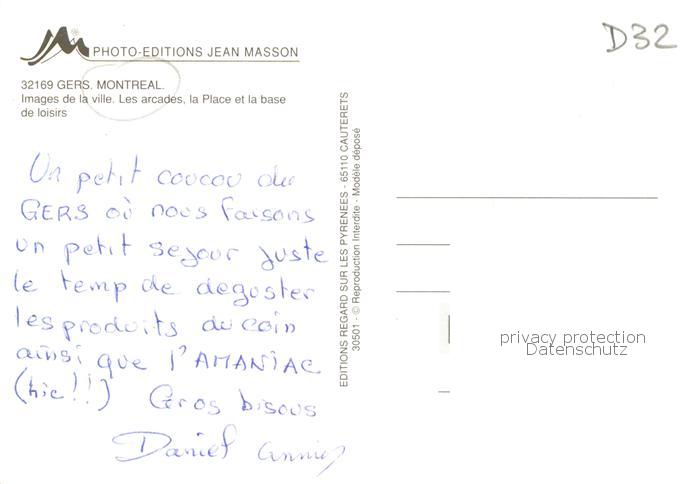 D32
JM PHOTO-EDITIONS JEAN MASSON
32169 GERS. MONTREAL.
Images de la ville. Les arcades, la Place et la base
de loisirs
Un petit coucou du
GERS où nous faisons
un petit sejour juste
le temp de deguster
les produits du coin
ainsi que l'AMANIAC
(hic!!) Gros bisous
Daniel Annie
EDITIONS REGARD SUR LES PYRENEES - 65110 CAUTERETS
30501 - © Reproduction Interdite - Modèle déposé
privacy protection
Datenschutz